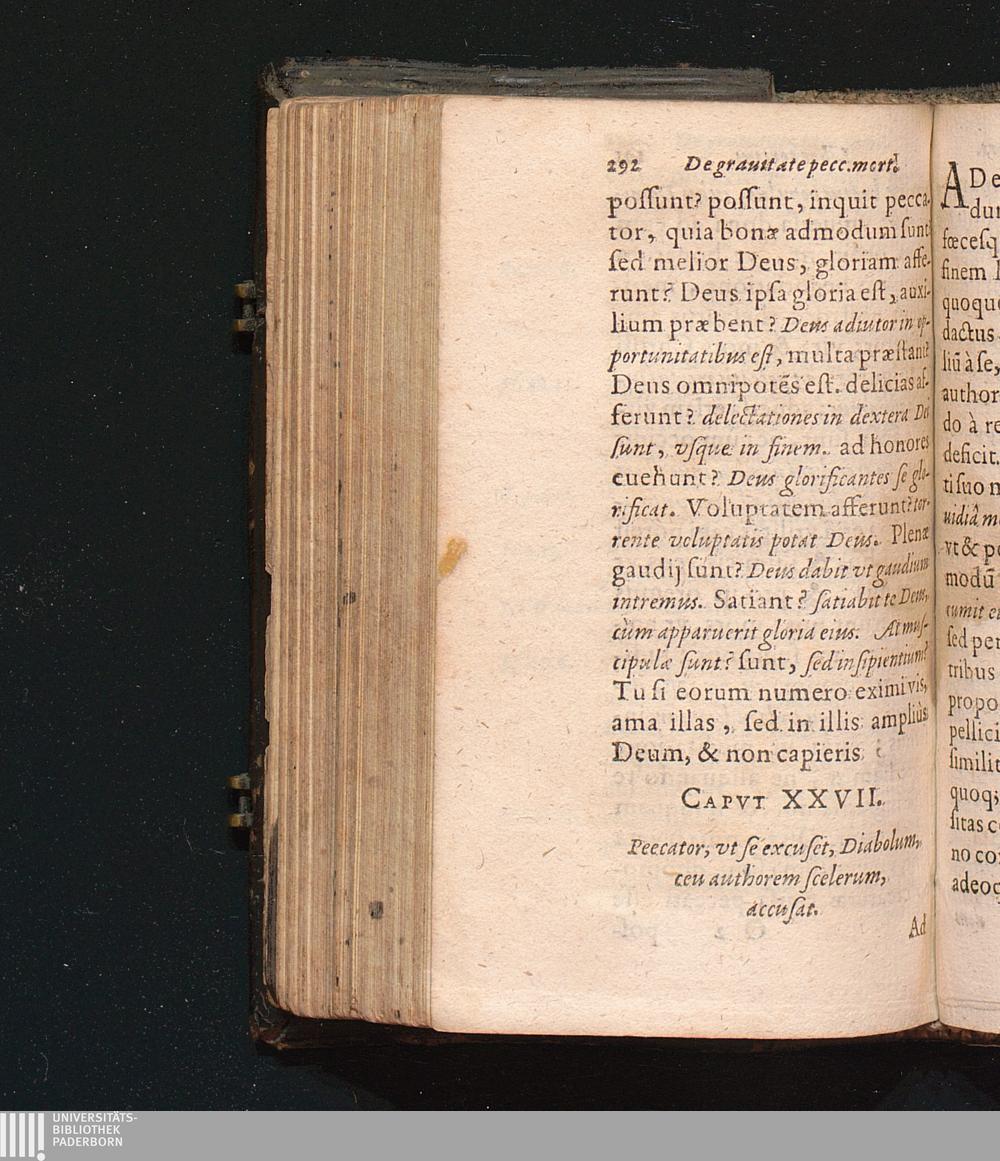 292 De grauitate pecc. mort.
poſſunt? poſſunt, inquit pecca-
tor, quia bonæ admodum ſunt
ſed melior Deus, gloriam affe-
runt? Deus ipſa gloria eſt, auxi-
lium præbent? Deus adiutor in op-
portunitatibus eſt, multa præſtant?
Deus omnipotẽs eſt. delicias af-
ferunt? delectationes in dextera Dei
ſunt, vſque in finem. ad honores
euehunt? Deus glorificantes ſe glo-
rificat. Voluptatem afferunt? tor-
rente voluptatis potat Deus. Plenæ
gaudij ſunt? Deus dabit vt gaudium
intremus. Satiant? ſatiabit te Deus,
cùm apparuerit gloria eius. At muſ-
cipulæ ſunt? ſunt, ſed inſipientium?
Tu ſi eorum numero eximi vis,
ama illas, ſed in illis ampliùs
Deum, & non capieris.
CAPVT XXVII.
Peccator, vt ſe excuſet, Diabolum,
ceu authorem ſcelerum,
accuſat.
Ad
A De
dum
fœceſq
finem
quoque
dactus
liũ à ſe,
author
do à re
deficit.
ti ſuo
uidiâ
vt & pe
modũ
tumit
ſed per
tribus
propo
pellici
ſimilit
quoq;
ſitas
no
adeoq
UNIVERSITÄTS-
BIBLIOTHEK
PADERBORN